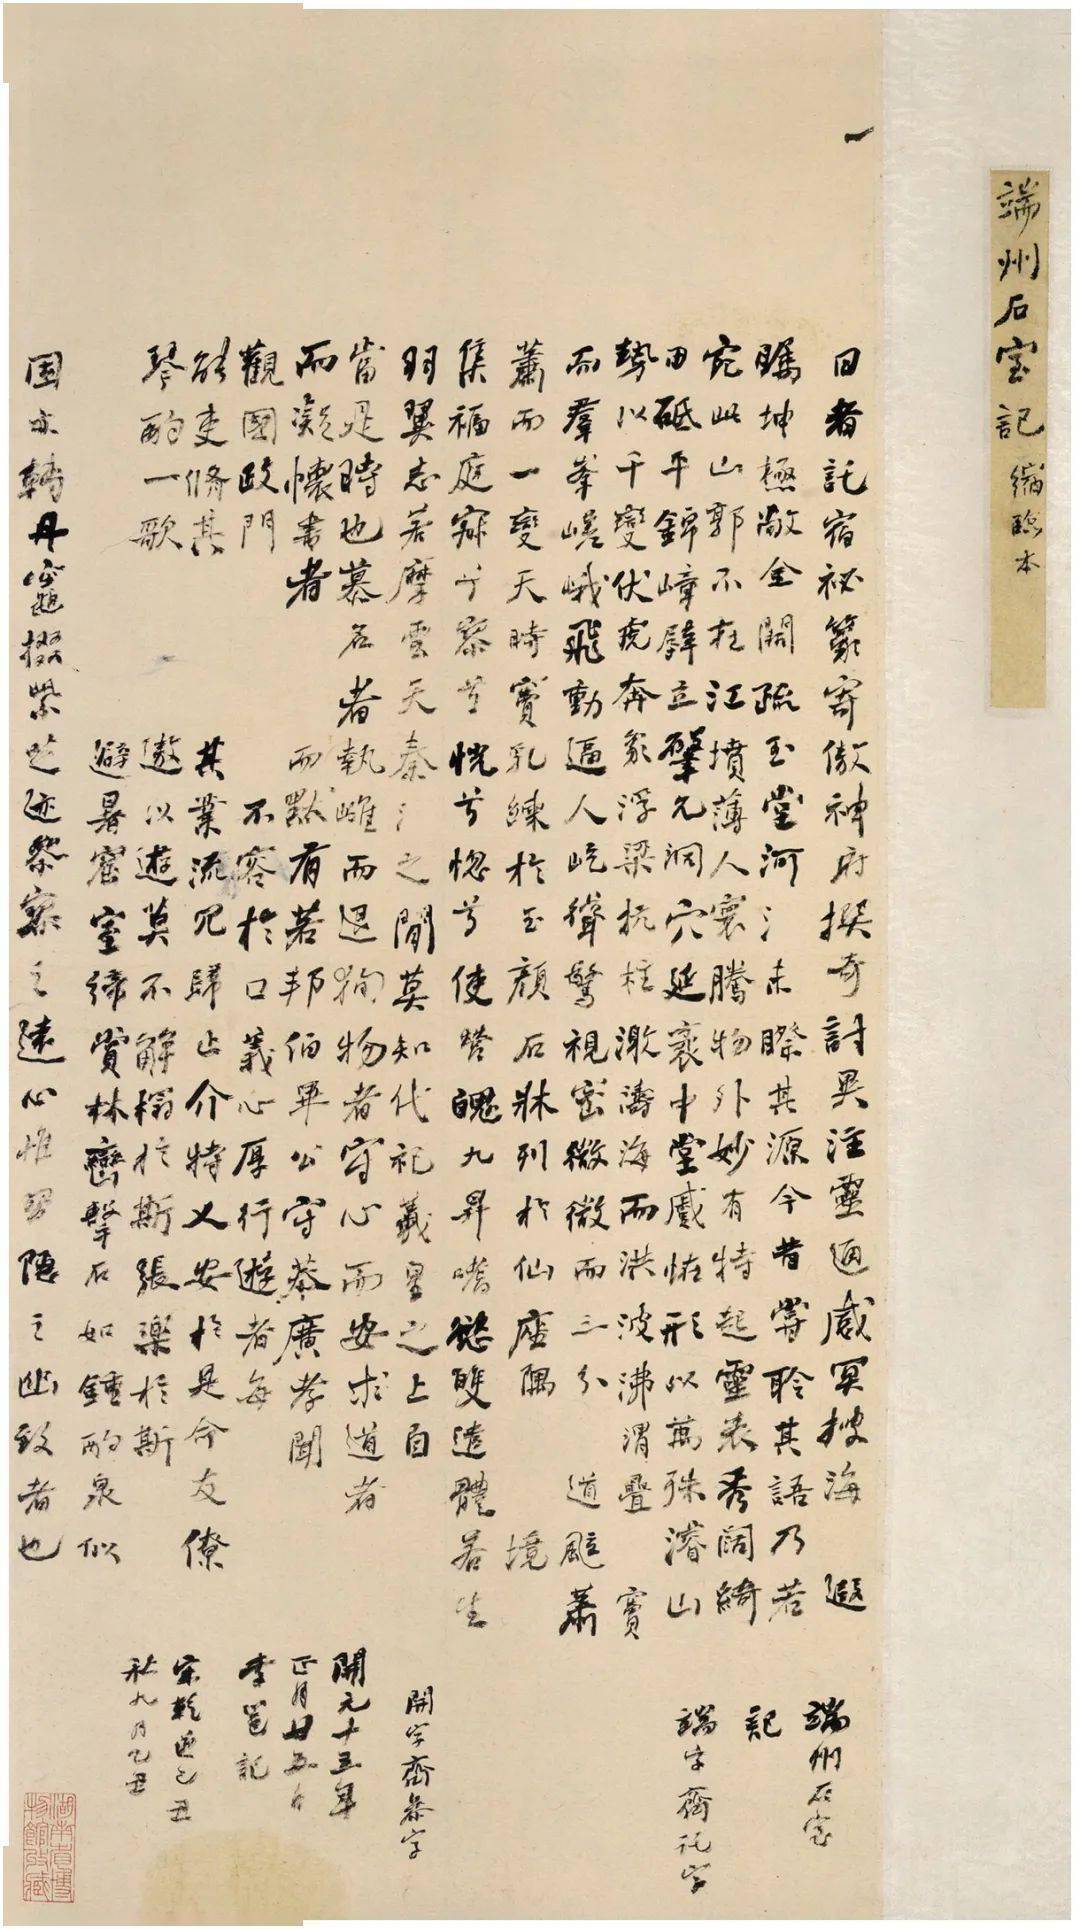 端州石室記 縮臨本
一
日者託宿祕籙寄傲神府撰奇討異注靈通感冥搜海遐
矚坤極敞金闕疏玉堂河未睽其源今昔嘗聆其語乃若
宛此山郭不在江壖薄人寰騰物外妙有特起靈表秀闊綺
田砥平錦嶂壁立肇允洞穴延袤中堂感怪形以萬殊濬山
勢以千變伏虎奔象浮梁抗柱激濤海而洪波沸渭疊
而羣峯嵯峨飛動逼人屹聳驚視密微微而三分道颸蕭
蕭而一變天時寶乳練於玉顏石牀列於仙座隅境
集福庭寂兮寥兮恍兮惚兮使營魄九昇嗜慾雙遣體若生
羽翼志若摩雲天秦之間莫知代祀羲皇之上自
當是時也慕名者執雌而退狥物者守心而安求道者
而凝懷書者而默有若邦伯畢公守恭廣孝聞
觀國政門不容於口義心厚行遊者每
能吏脩其其業流冗歸止介特乂安於是命友僚
琴酌一歌遨以遊莫不解榻於斯張樂於斯
避暑窟室緣賞林巒擊石如鐘酌泉似
固亦轉丹竈掇紫芝迹祭寥之遠心惟隱之幽致者也
端州石室
記
寶
端字齊託字
開字齊恭字
開元十五年
正月廿五日
李邕記
宋乾道己丑
秋九月乙丑
湖南省博
物館收藏